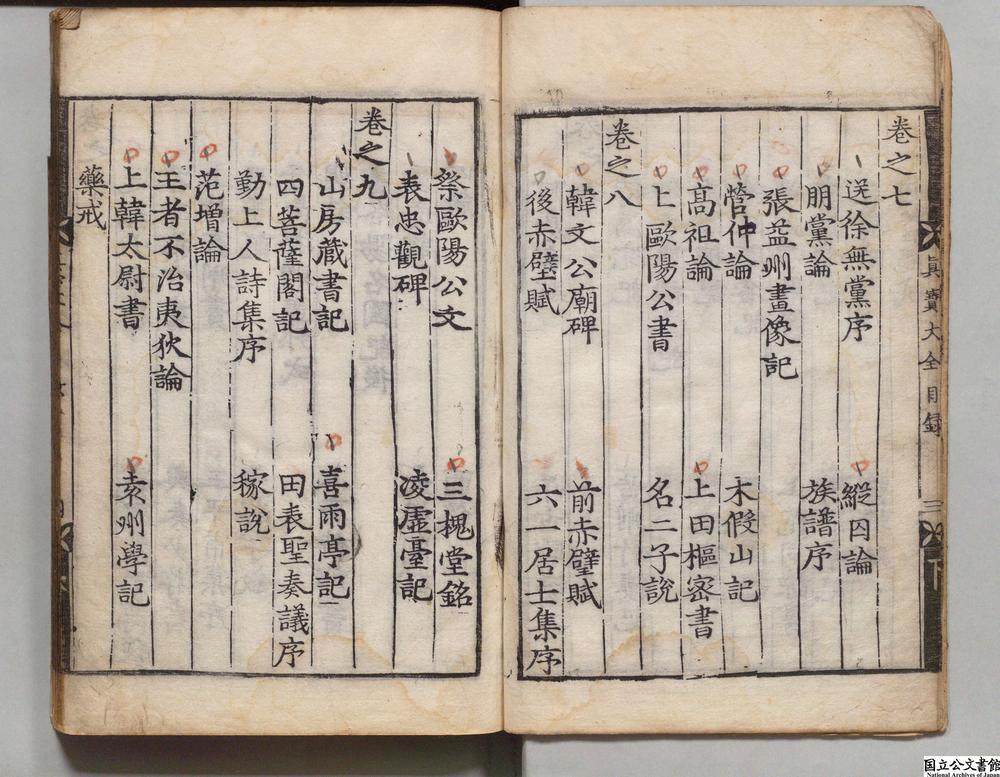 卷之七
送徐無黨序 縱囚論
朋黨論 族譜序
張益州畫像記
管仲論 木假山記
高祖論 上田樞密書
上歐陽公書 名二子說
卷之八
韓文公廟碑 前赤壁賦
後赤壁賦 六一居士集序
眞寶大全目録 三
祭歐陽公文 三槐堂銘
表忠觀碑 凌虛臺記
卷之九
山房藏書記 喜雨亭記
四菩薩閣記 田表聖奏議序
勤上人詩集序 稼說
范增論
王者不治夷狄論
上韓太尉書 袁州學記
藥戒
国立公文書館
National Archives of Japan